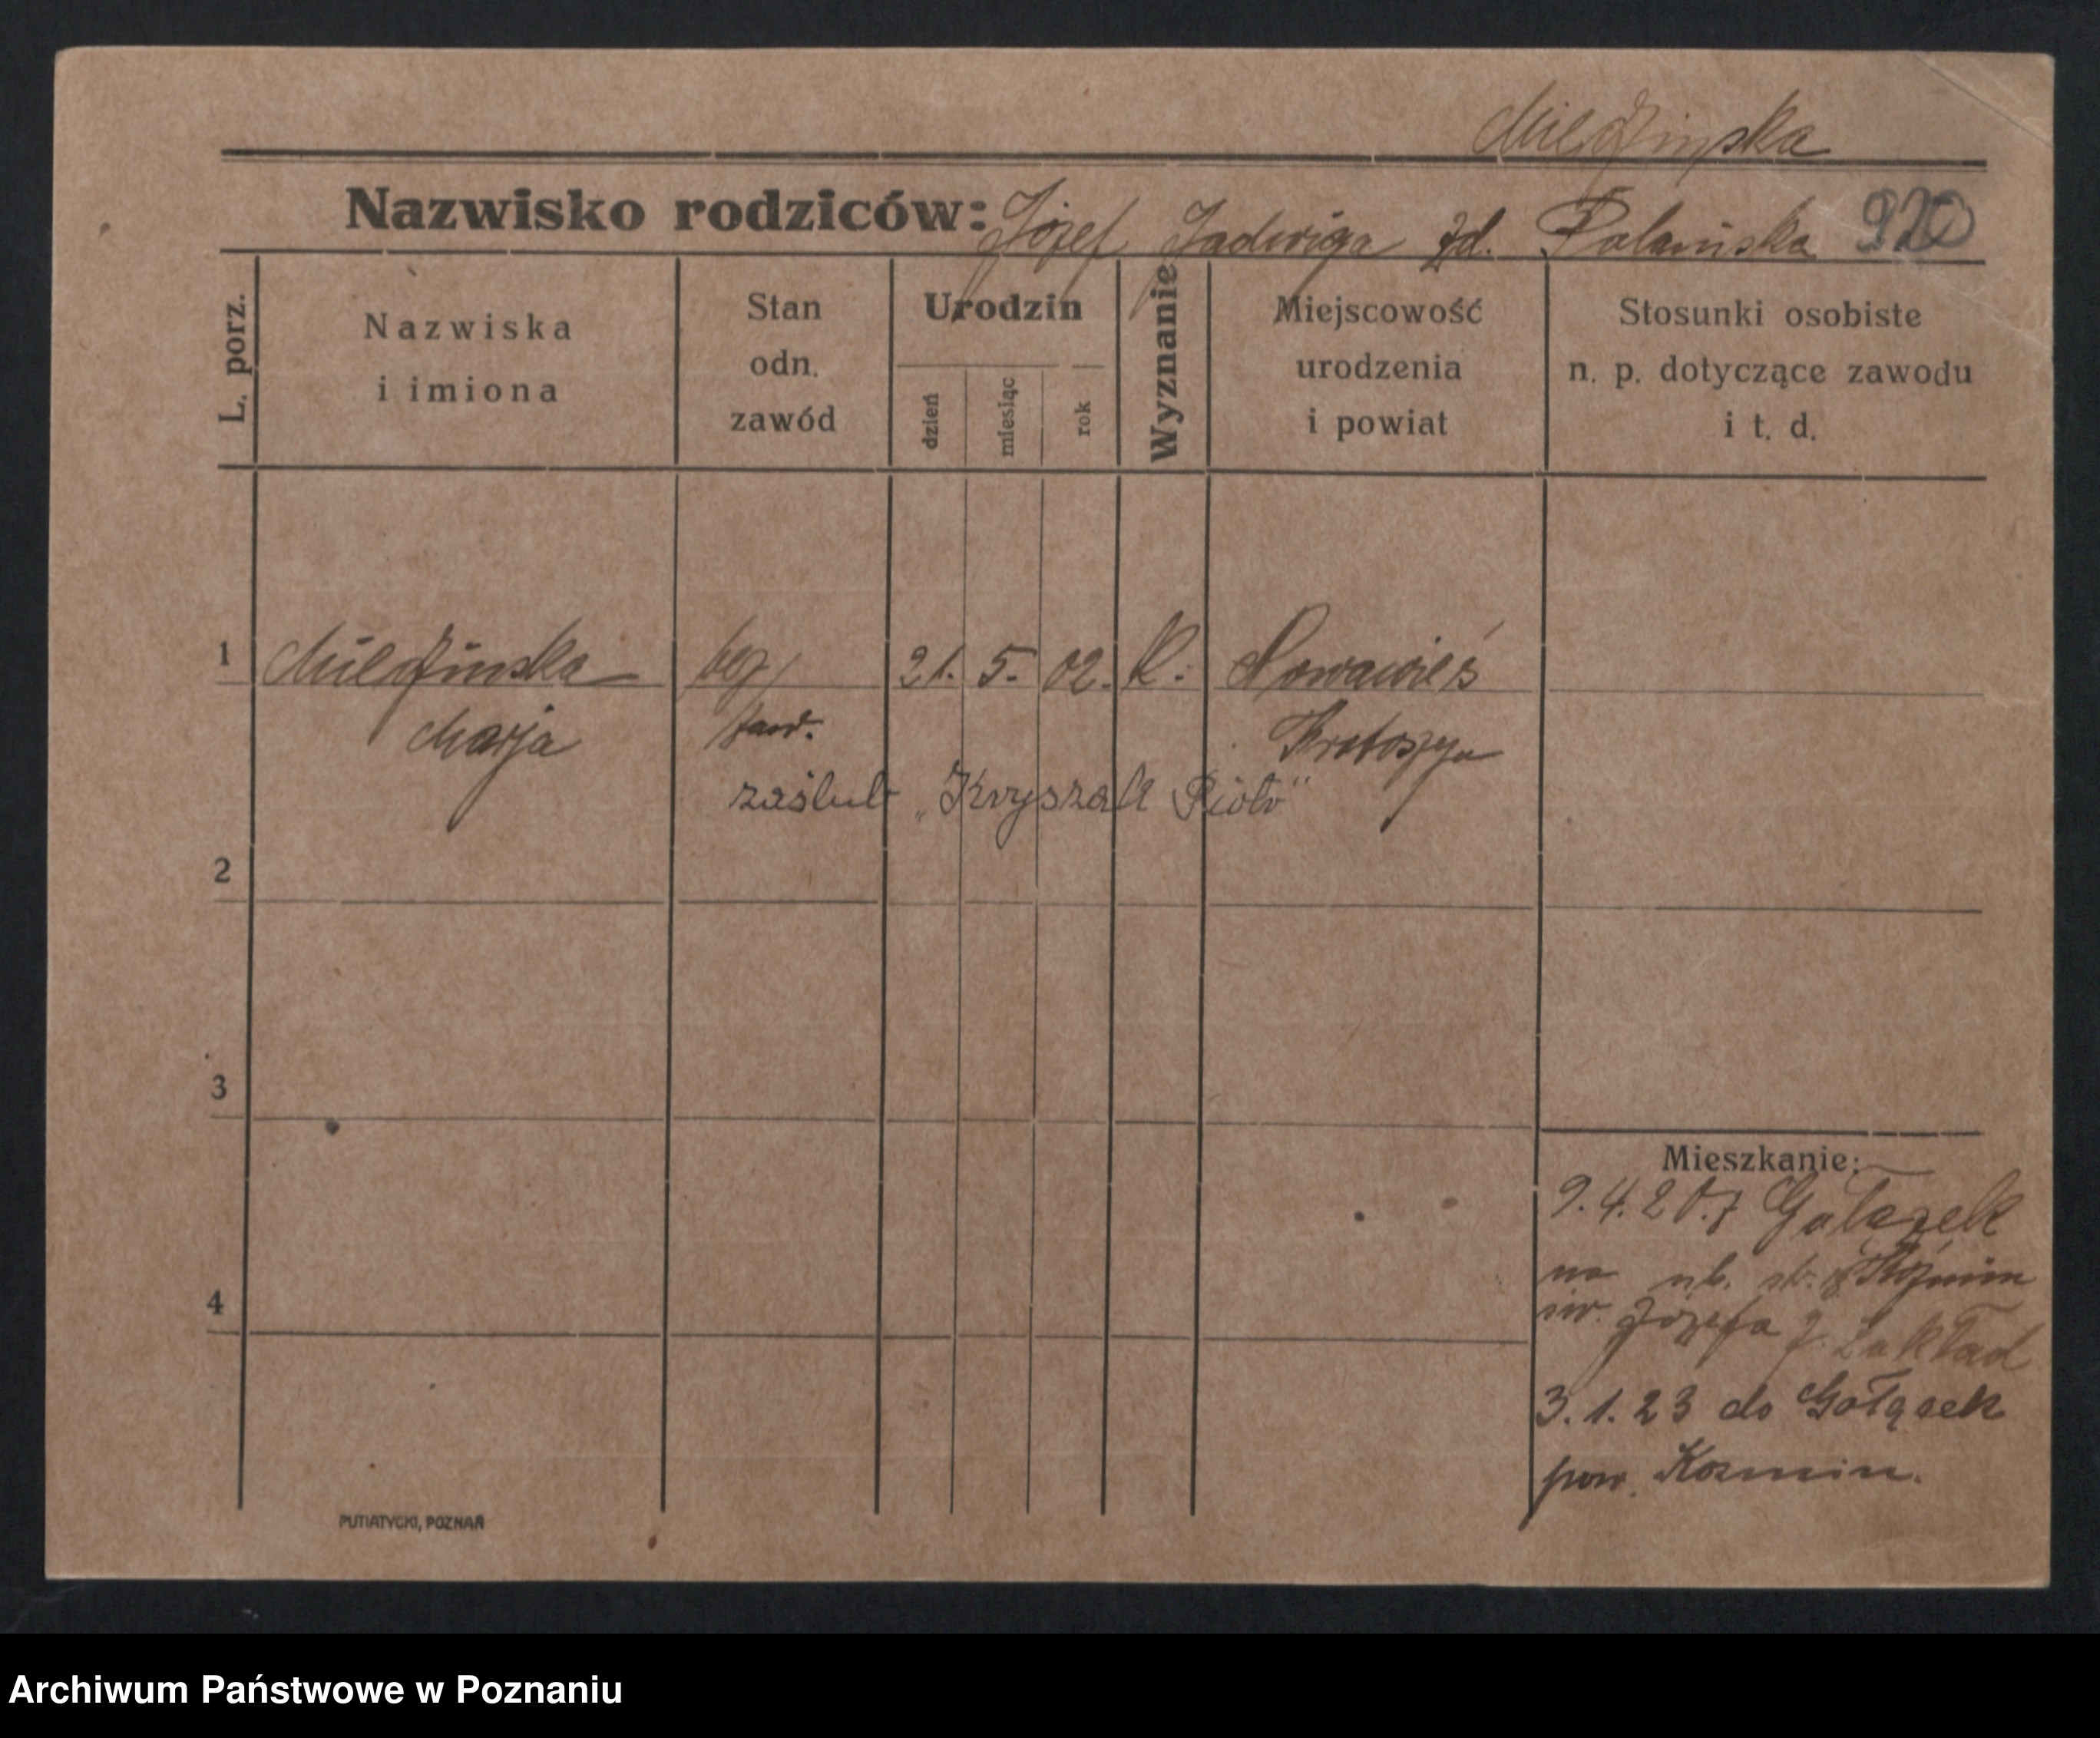 Miedzinska
Nazwisko rodziców: Józef Jadwiga zd. Polańska 920
L. porz.
Nazwiska
i imiona
Stan
odn.
zawód
Urodzin
dzień
miesiąc
rok
Wyznanie
Miejscowość
urodzenia
i powiat
Stosunki osobiste
n. p. dotyczące zawodu
i t. d.
1 Miedzinska bez 21. 5. 02. K. Nowawieś
Marja zaw. Krotoszyn
zaślub „Kryszak Piotr"
2
3
4
Mieszkanie:
9.4.20. z Gołazek
na ul. św.
św. Józefa Zakład
3.1.23 do Gołązek
pow. Kozmin.
PUTIATYCKI, POZNAŃ
Archiwum Państwowe w Poznaniu